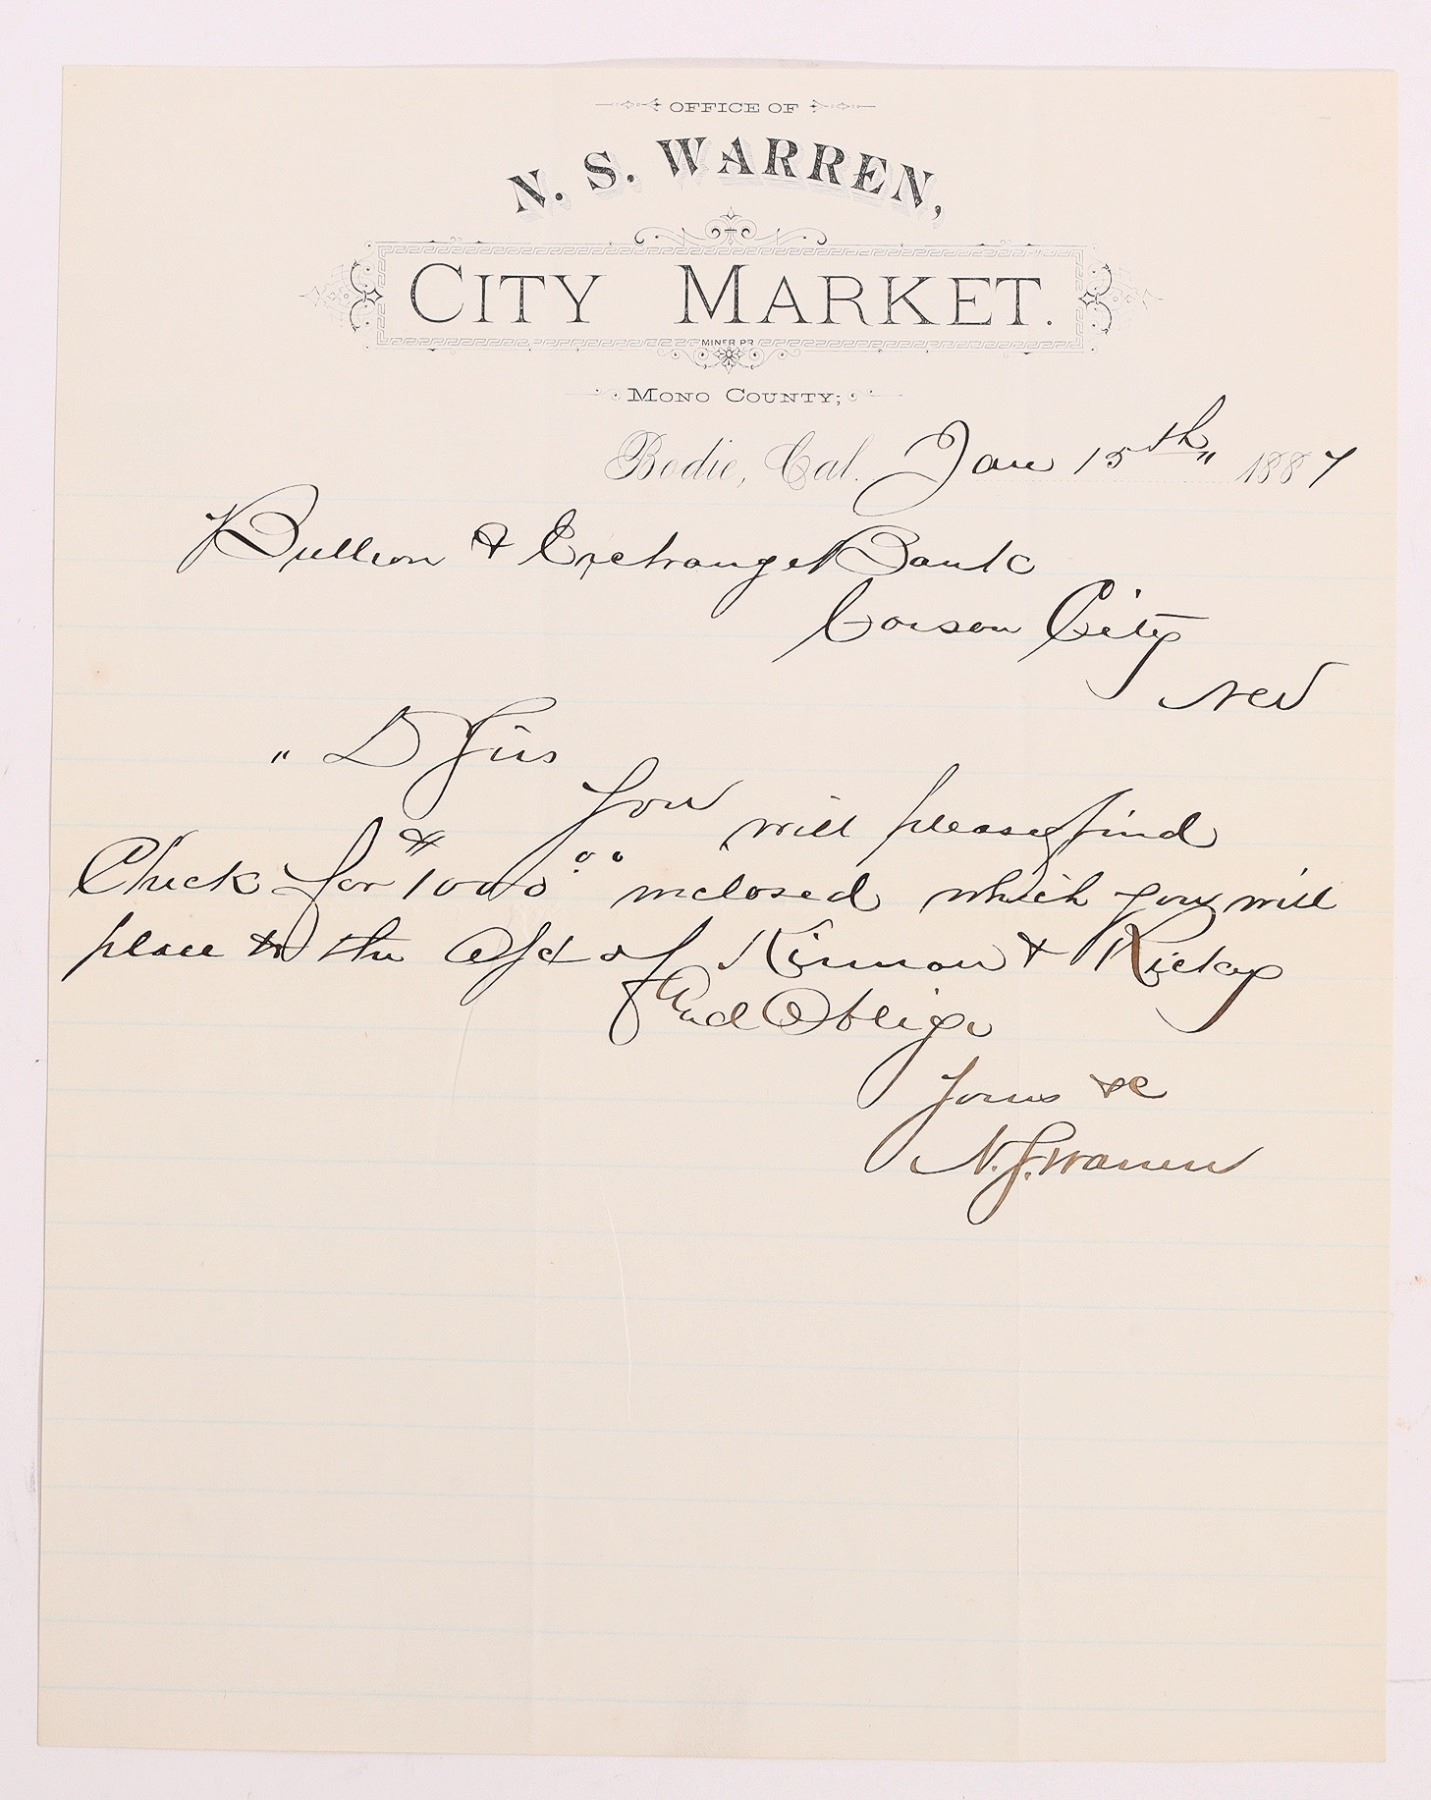 OFFICE OF
N. S. WARREN,
CITY MARKET.
MINER PR
MONO COUNTY;
Bodie, Cal. Jan 15th " 1887
Bullion & Exchange Bank
Carson City
Nev
" D Sirs
You will please find
Check for $1000.00 inclosed which you will
place to the a/c of Kirman & Rickey
And Oblige
Yours &c
N. S. Warren